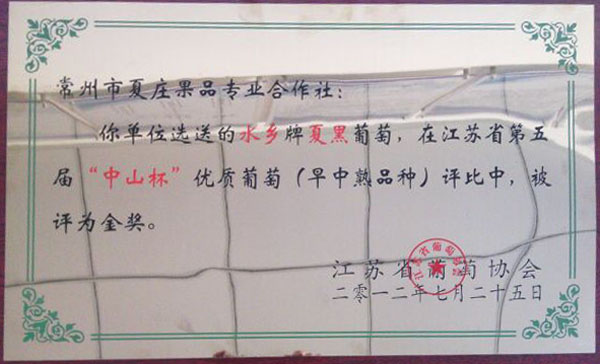 常州市夏庄果品专业合作社：
你单位选送的水乡牌夏黑葡萄，在江苏省第五
届“中山杯”优质葡萄（早中熟品种）评比中，被
评为金奖。
江苏省葡萄协会
二零一二年七月二十五日